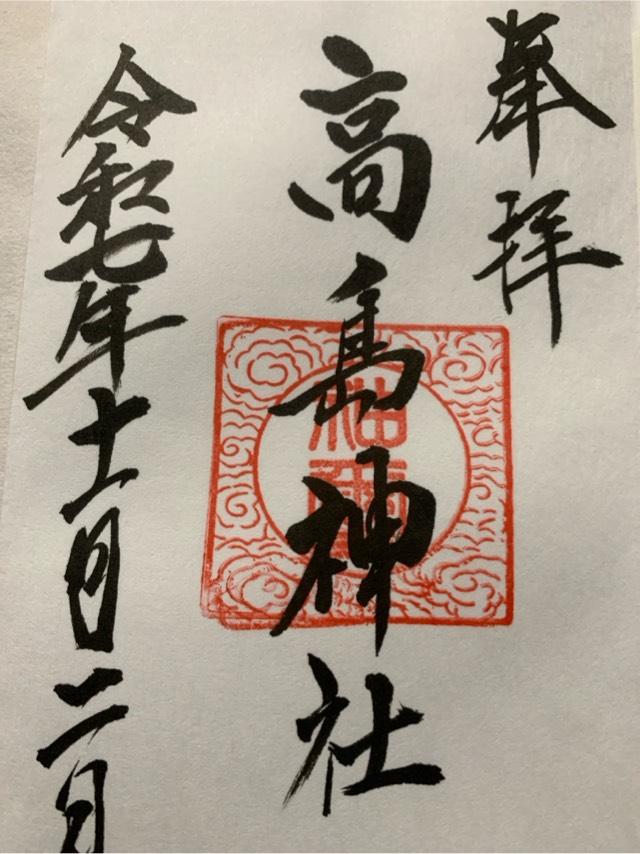 奉拝
高島神社
令和七年十一月二日